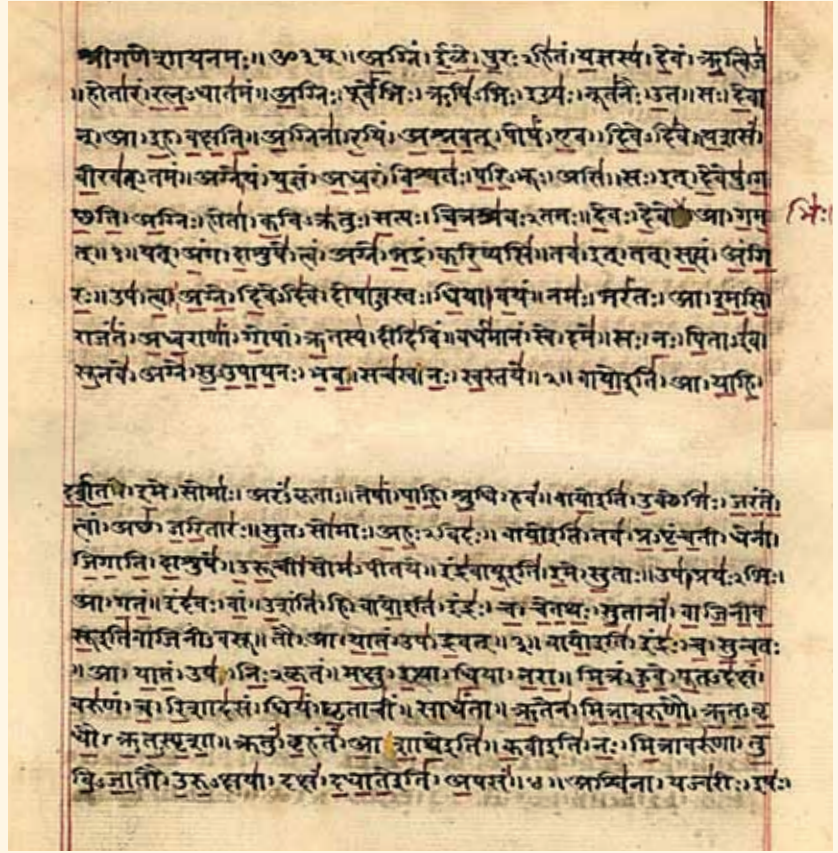 श्रीगणेशायनमः॥ॐ३म्॥अग्निं।ईळे।पुरःऽहितं।यज्ञस्य।देवं।ऋत्विजं
॥होतारं।रत्नऽधातमं॥अग्निः।पूर्वेभिः।ऋषिऽभिः।ईड्यः।नूतनैः।उत॥सः।देवा
न्।आ।इह।वक्षति॥अग्निना।रयिं।अश्नवत्।पोषं।एव।दिवेऽदिवे॥यशसं
वीरवत्ऽतमं॥अग्ने।यं।यज्ञं।अध्वरं।विश्वतः।परिऽभूः।असि॥सः।इत्।देवेषु।ग
च्छति।अग्निः।होता।कविऽक्रतुः।सत्यः।चित्रश्रवःऽतमः॥देवः।देवे।आ।गम भिः
त्॥१॥यत्।अंग।दाशुषे।त्वं।अग्ने।भद्रं।करिष्यसि॥तव।इत्।तत्।सत्यं।अंगि
रः॥उप।त्वा।अग्ने।दिवेऽदिवे।दोषाऽवस्तः।धिया।वयं॥नमः।भरंतः।आ।इमसि
राजंतं।अध्वराणां।गोपां।ऋतस्य।दीदिविं॥वर्धमानं।स्वे।दमे॥सः।नः।पिताऽइव
सूनवे।अग्ने।सुऽउपायनः।भव॥सचस्व।नः।स्वस्तये॥२॥वायोइति।आ।याहि।
दर्शत।इमे।सोमाः।अरंऽकृताः॥तेषां।पाहि।श्रुधि।हवं॥वायोइति।उक्थेभिः।जरंते
त्वां।अच्छ।जरितारः॥सुतऽसोमाः।अहःऽविदः॥वायोइति।तव।प्रऽपृंचती।धेना।
जिगाति।दाशुषे।उरूची।सोमऽपीतये॥इंद्रवायूइति।इमे।सुताः॥उप।प्रयःऽभिः।
आ।गतं॥इंदवः।वां।उशंति।हि।वायोइति।इंद्रः।च।चेतथः।सुतानां।वाजिनीव
सूइतिवाजिनीऽवसू॥तौ।आ।यातं।उप।द्रवत्॥३॥वायोइति।इंद्रः।च।सुन्वतः
॥आ।यातं।उप।निःऽकृतं॥मक्षु।इत्था।धिया।नरा॥मित्रं।हुवे।पूतऽदक्षं।
वरुणं।च।रिशादसं।धियं।घृताचीं॥साधंता॥ऋतेन।मित्रावरुणौ।ऋतऽवृ
धौ।ऋतऽस्पृशा॥क्रतुं।बृहंतं।आशाथेइति॥कवीइति।नः।मित्रावरुणा।तु
विऽजातौ।उरुऽक्षया।दक्षं।दधातेइति।अपसं॥४॥अश्विना।यज्वरीः।इषः।